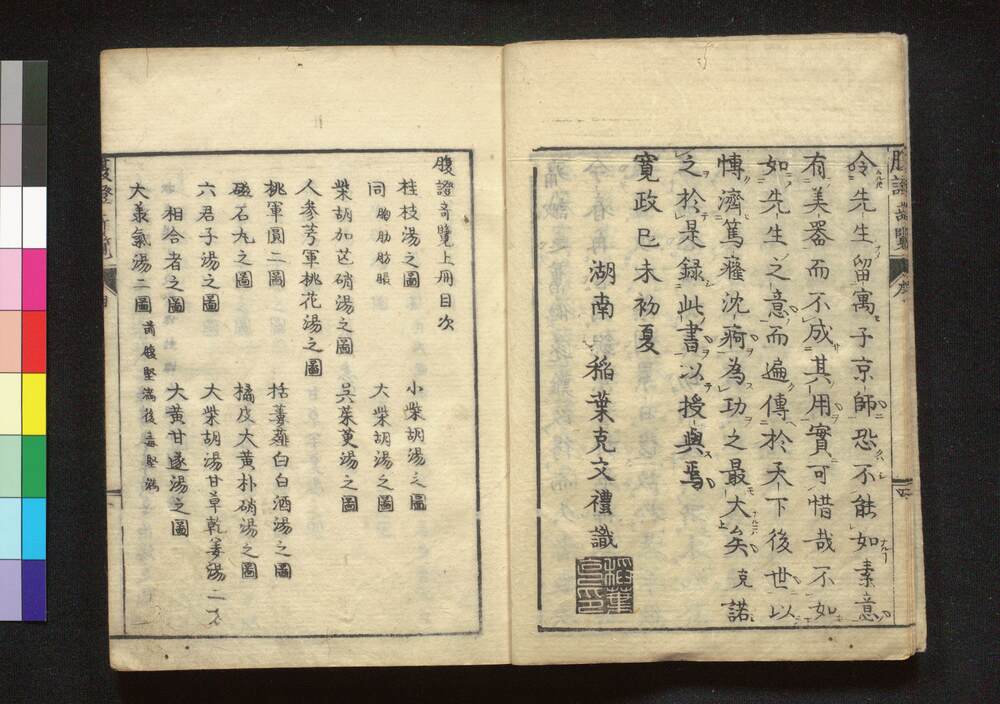 令先生留寓于京師恐不能如素意
有美器而不成其用實可惜哉不如
如先生之意而遍傳於天下後世以
博濟篤癃沈痾為功之最大矣克諾
之於是録此書以授與焉
寛政己未初夏
湖南 稲葉克文禮識
腹證奇覽上冊目次
桂枝湯之圖 小柴胡湯之圖
同胸肋肋脹 大柴胡湯之圖
柴胡加芒硝湯之圖 呉茱萸湯之圖
人參芎軍桃花湯之圖
桃軍圓二圖 括蔞薤白白酒湯之圖
磁石丸之圖 橘皮大黄朴硝湯之圖
六君子湯之圖 大柴胡湯甘草乾姜湯二方
相合者之圖 大黄甘遂湯之圖
大承氣湯二圖 前後堅滿後毒堅滿